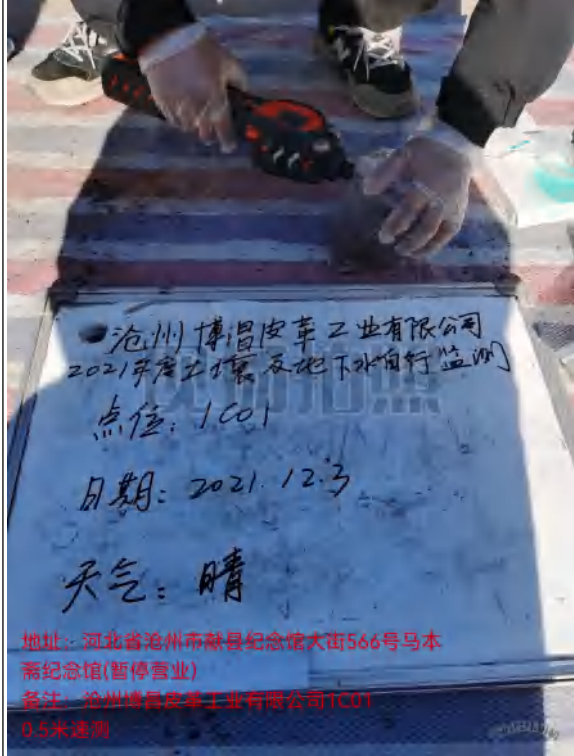 沧州博昌皮革工业有限公司
2021年度土壤及地下水自行监测
点位：1C01
日期：2021.12.3
天气：晴
地址：河北省沧州市献县纪念馆大街566号马本
斋纪念馆(暂停营业)
备注：沧州博昌皮革工业有限公司1C01
0.5米速测